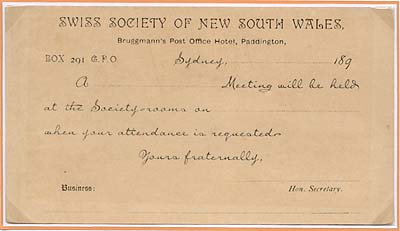 SWISS SOCIETY OF NEW SOUTH WALES,
Bruggmann's Post Office Hotel, Paddington,
BOX 291 G.P.O Sydney, 189
A Meeting will be held
at the Society-rooms on
when your attendance is requested.
Yours fraternally,
Business: Hon. Secretary.